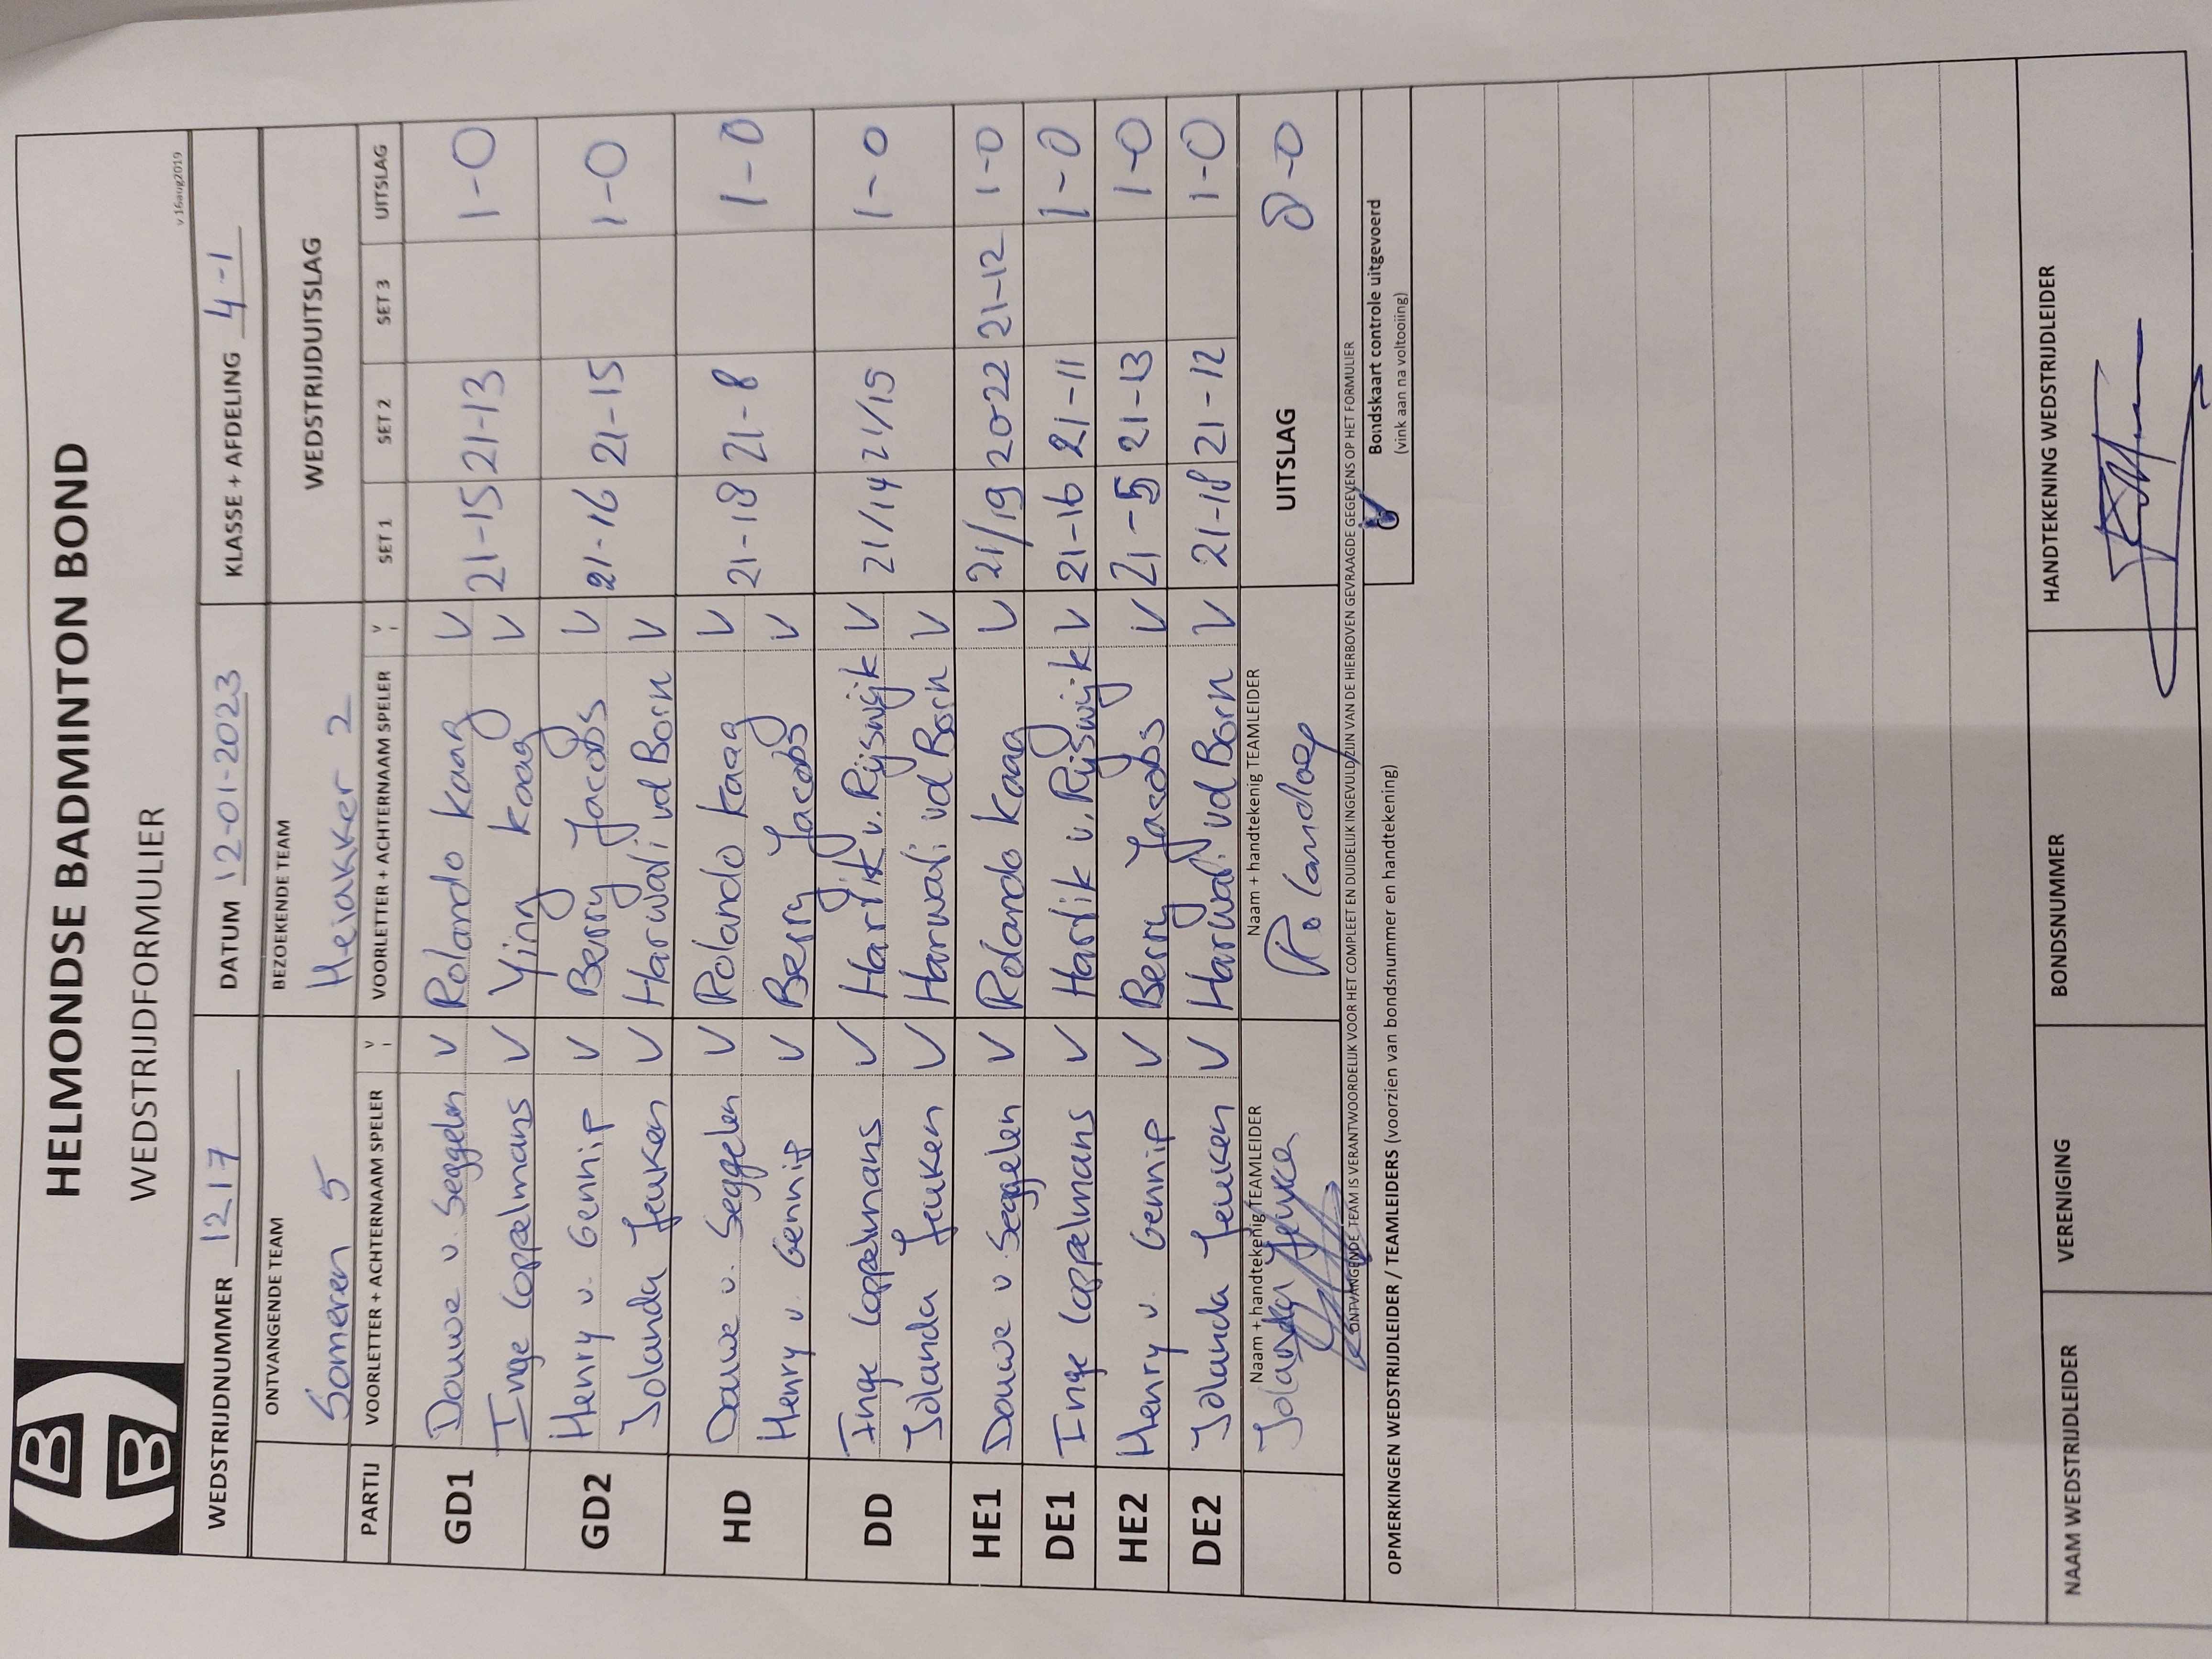 HELMONDSE BADMINTON BOND
WEDSTRIJDFORMULIER
v 16aug2019
WEDSTRIJDNUMMER 1217 DATUM 12-01-2023 KLASSE + AFDELING 4-1
ONTVANGENDE TEAM BEZOEKENDE TEAM WEDSTRIJDUITSLAG
Someren 5 Heiakker 2
PARTIJ VOORLETTER + ACHTERNAAM SPELER V VOORLETTER + ACHTERNAAM SPELER V SET 1 SET 2 SET 3 UITSLAG
GD1 Douwe v. Seggelen V Rolando Kaag V 21-15 21-13 1-0
Inge Coppelmans V Ying Kaag V
GD2 Henry v. Gennip V Berry Jacobs V 21-16 21-15 1-0
Jolanda Jeuken V Harwati vd Born V
HD Douwe v. Seggelen V Rolando Kaag V 21-18 21-8 1-0
Henry v. Gennip V Berry Jacobs V
DD Inge Coppelmans V v. Rijswijk V 21/14 21/15 1-0
Jolanda Jeuken V Harwati vd Born V
HE1 Douwe v. Seggelen V Rolando Kaag V 21/19 2022 21-12 1-0
DE1 Inge Coppelmans V v. Rijswijk V 21-16 21-11 1-0
HE2 Henry v. Gennip V Berry Jacobs V 21-5 21-13 1-0
DE2 Jolanda Jeuken V Harwati vd Born V 21-18 21-12 1-0
Naam + handtekenig TEAMLEIDER Naam + handtekenig TEAMLEIDER UITSLAG 8-0
Jolanda Jeuken
ONTVANGENDE TEAM IS VERANTWOORDELIJK VOOR HET COMPLEET EN DUIDELIJK INGEVULD ZIJN VAN DE HIERBOVEN GEVRAAGDE GEGEVENS OP HET FORMULIER
OPMERKINGEN WEDSTRIJDLEIDER / TEAMLEIDERS (voorzien van bondsnummer en handtekening)
Bondskaart controle uitgevoerd
(vink aan na voltooiing)
NAAM WEDSTRIJDLEIDER VERENIGING BONDSNUMMER HANDTEKENING WEDSTRIJDLEIDER